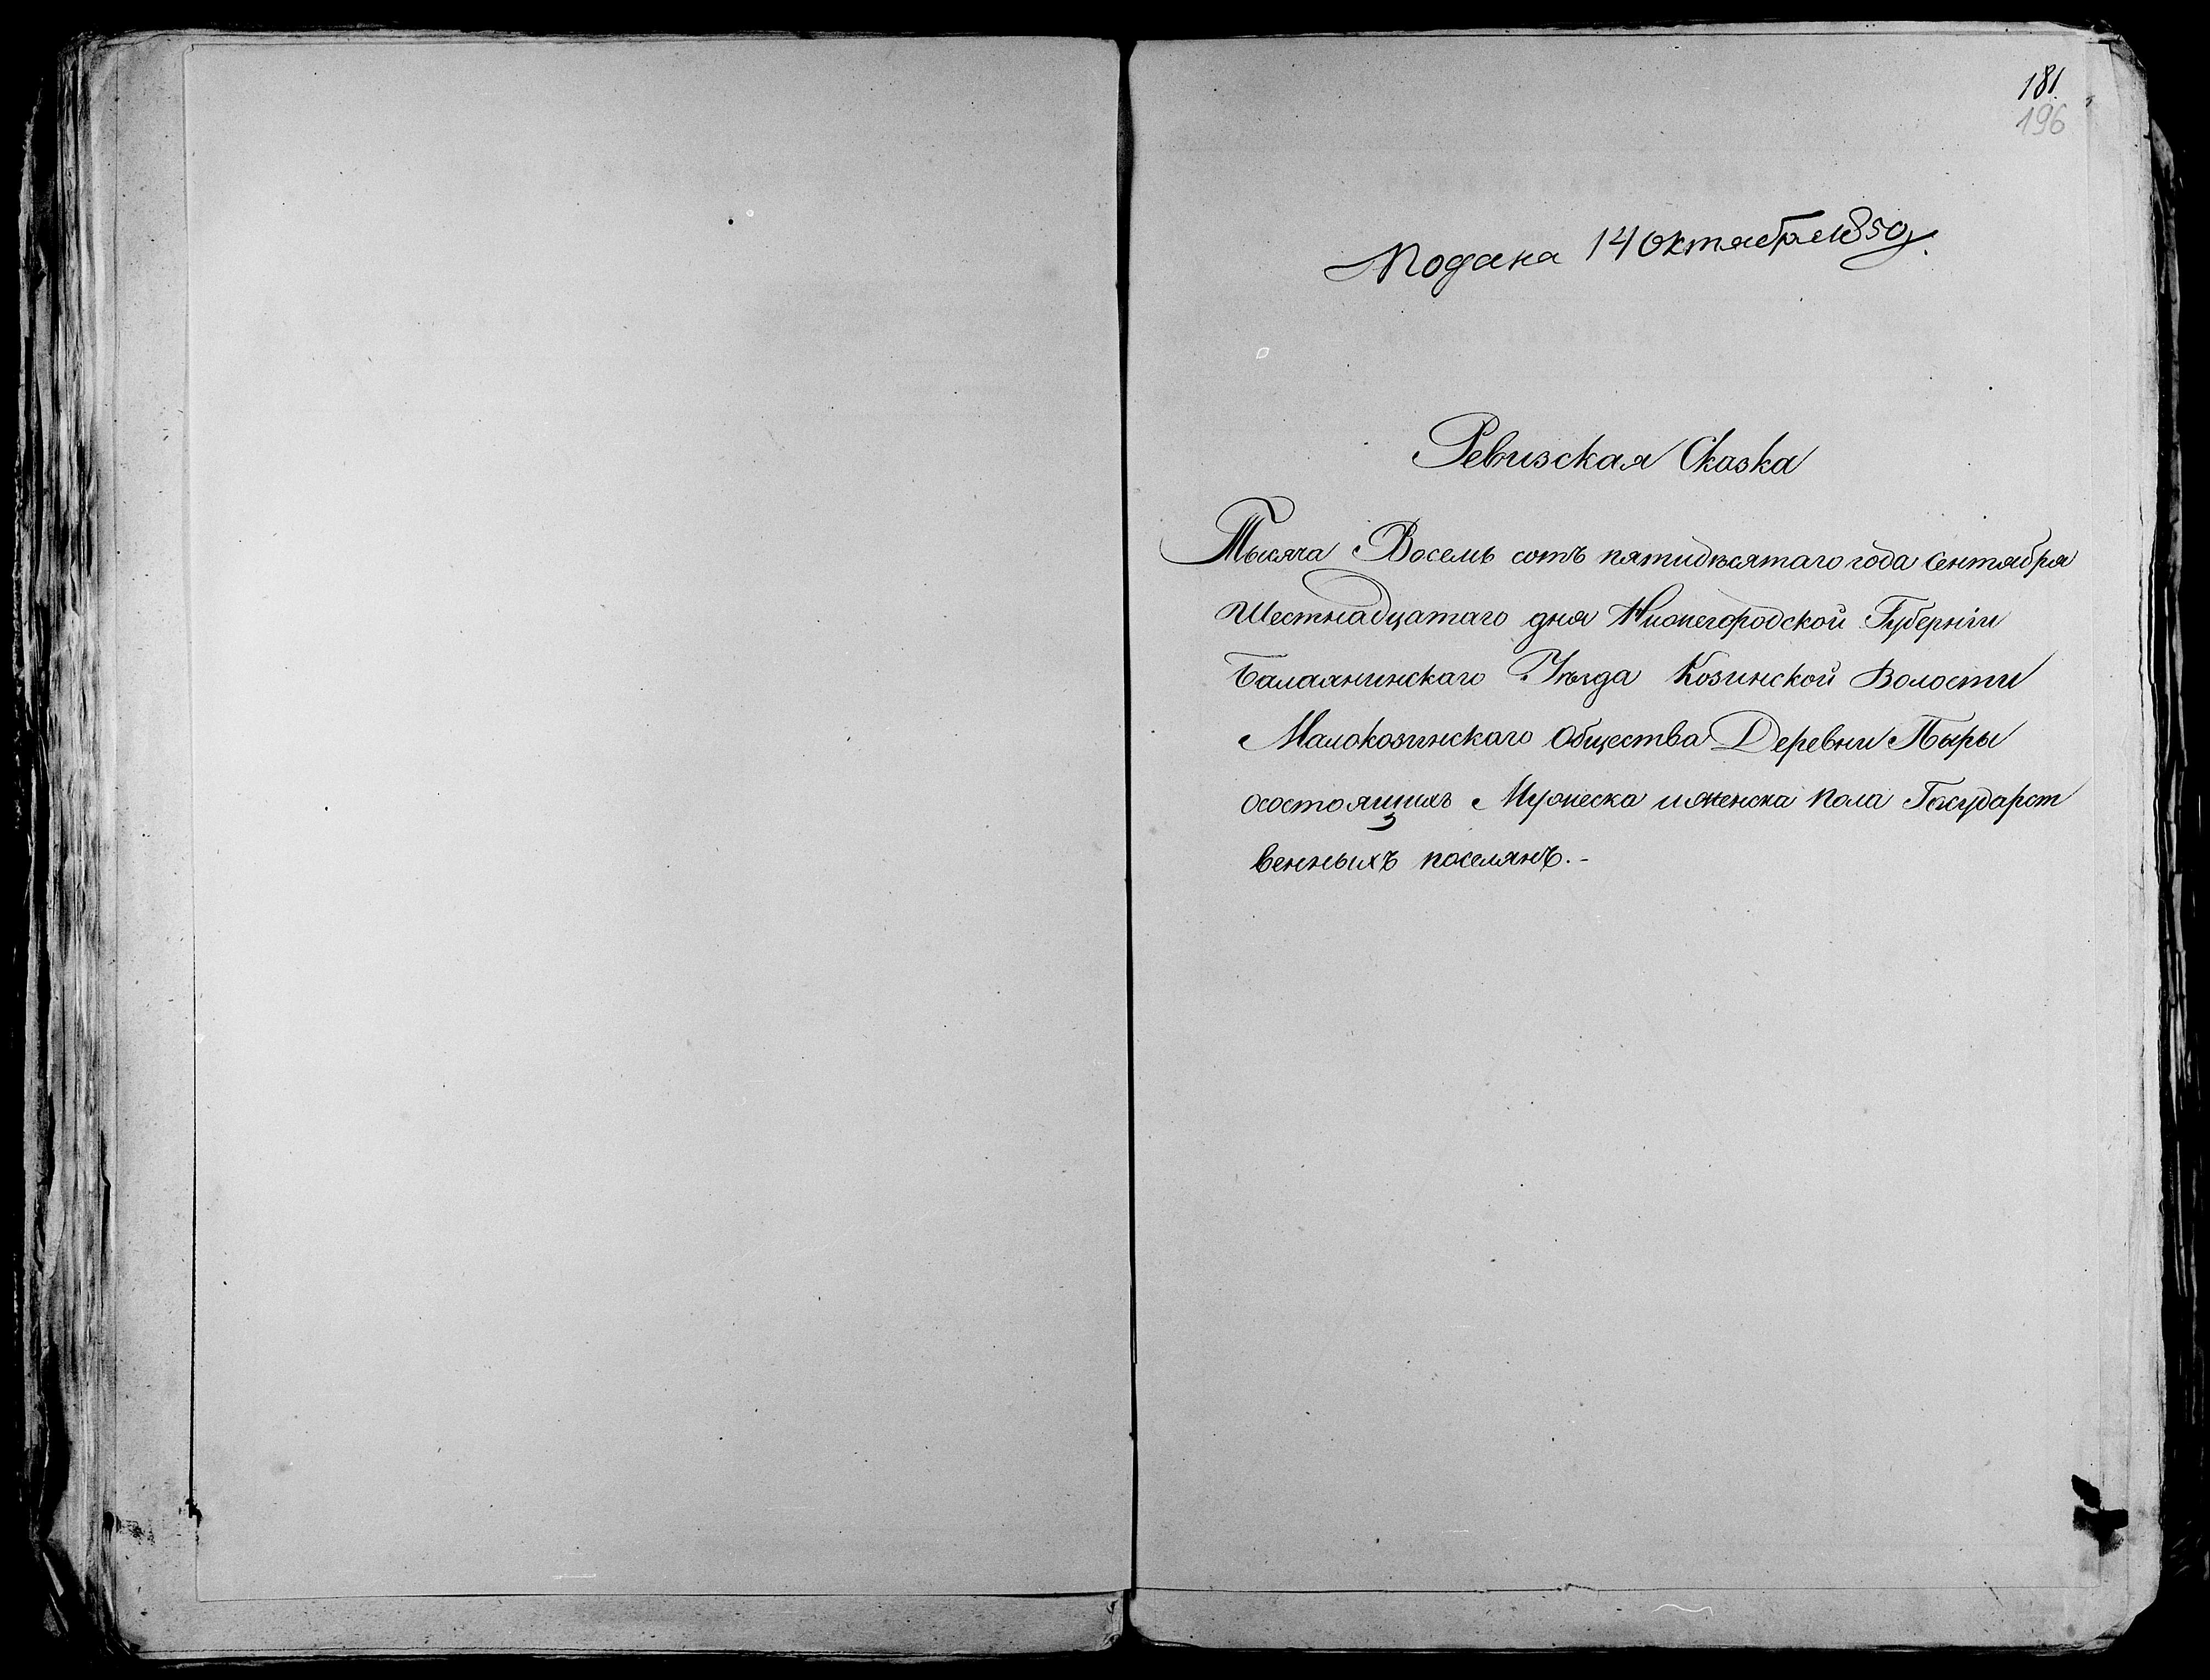 181
196
Подана 14 октября 1850 г.
Ревизская Сказка
Тысяча Восемь сотъ пятидесятаго года Сентября
Шестнадцатаго дня Нижегородской Губерніи
Балахнинскаго Уѣзда Козинской Волости
Малокозинскаго Общества Деревни Пыры
осостоящихъ Мужеска иженска пола Государст
венныхъ поселянъ.-